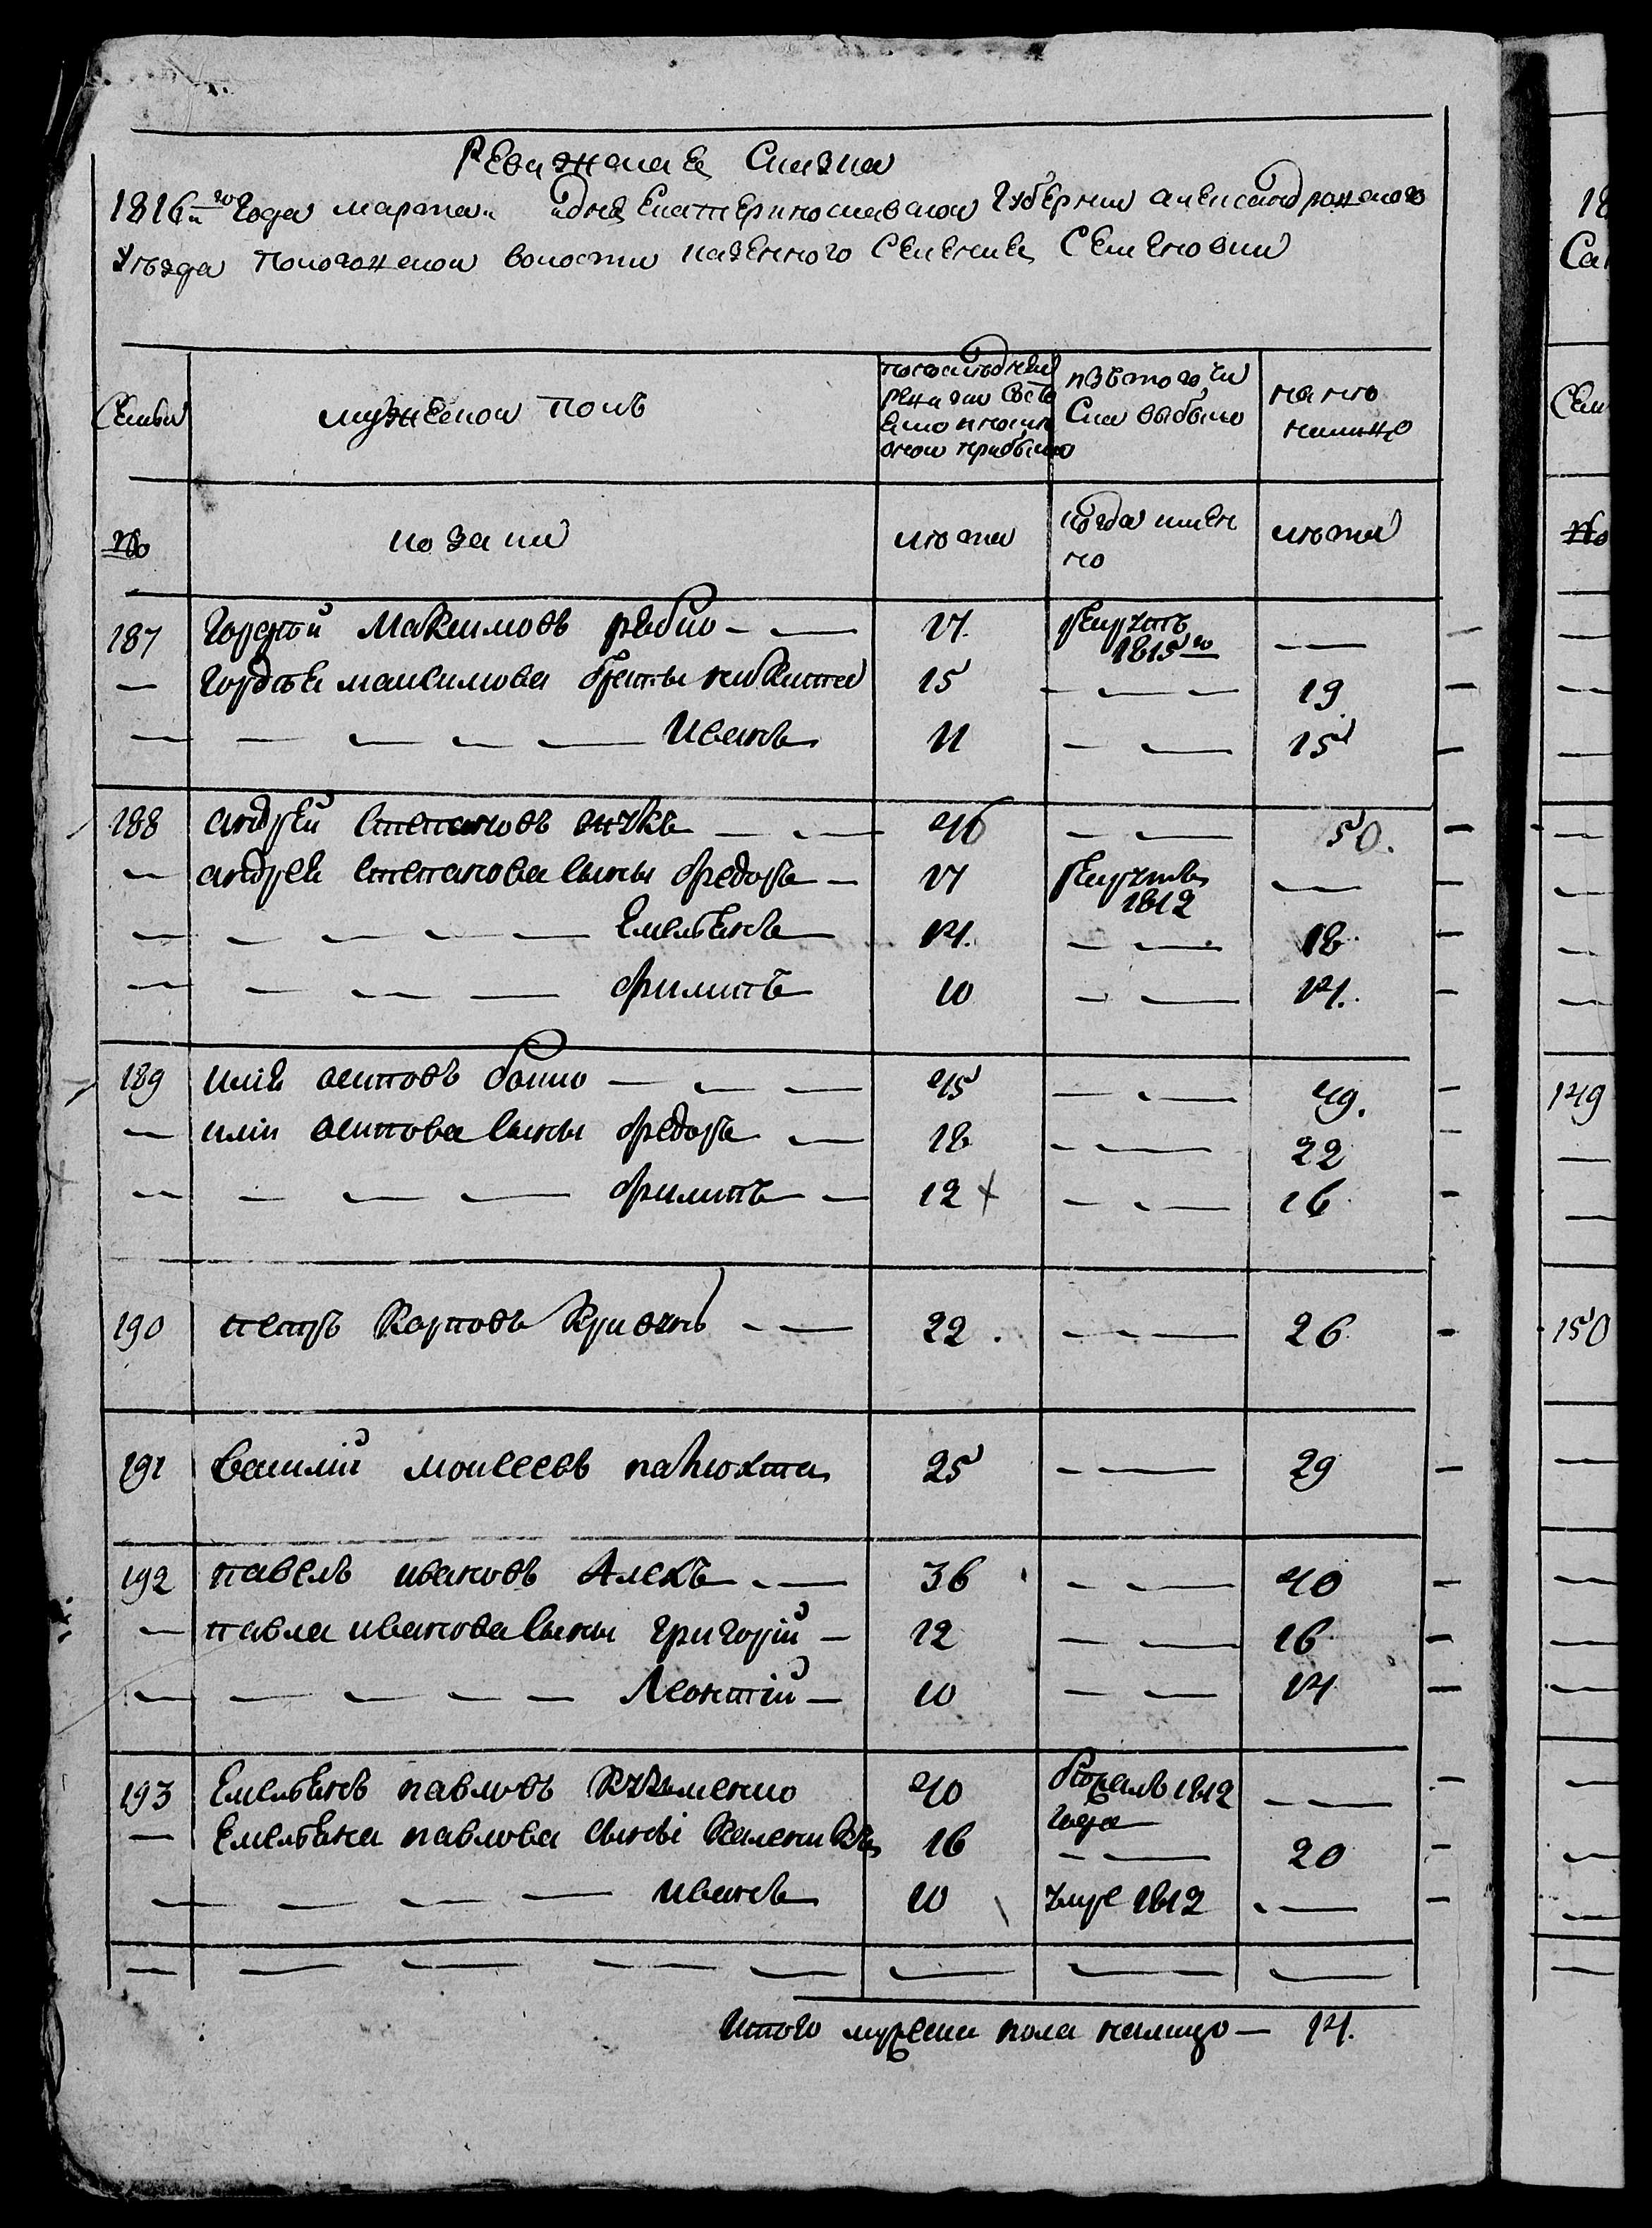 Ревижская Сказка
1816го Года марта дня Екатеринославской Губернии александровского
Уезда Пологовской волости казенного Селения Семеновки
Семьи
мужеской полъ
по последней ревизии состояло и после оной прибыло
изъ того числа выбыло
ныне на лицо
№
козаки
лета
когда именно
лета
187 Гордей Максимовъ рябко — — 17. рекрутъ 1815го — —
— Гордея максимова братья никита 15 — — — 19
— — — — — Иванъ 11 — — 15
188 андрей степановъ жукъ — — 46 — — 50.
— андрея степанова сыны федоръ — 17 рекрутъ 1812 —
— — — — — Емельянъ 14. — — 18
— — — — филипъ 10 — — 14.
189 илія осиповъ бойко — — — 45 — — 49.
— иліи осипова сыны федоръ — 18 — — 22
— — — — филипъ — 12 — — 16
190 петръ Карповъ Кривунъ — — 22. — — — 26
191 василій моисеевъ палюхта 25 — — 29
192 павелъ ивановъ Алекъ — — 36 — — 40
— павла иванова сыны григорій — 12 — — 16
— — — — — Леонтій — 10 — — 14
193 Емельянъ павловъ Кукменко 40 1812 года — —
— Емельяна павлова сыны Каленикъ 16 — — 20
— — — — — иванъ 10 умре 1812 — —
— — — — — — — —
Итого мужеска пола налицо — 14.
18
Семьи
№
149
150